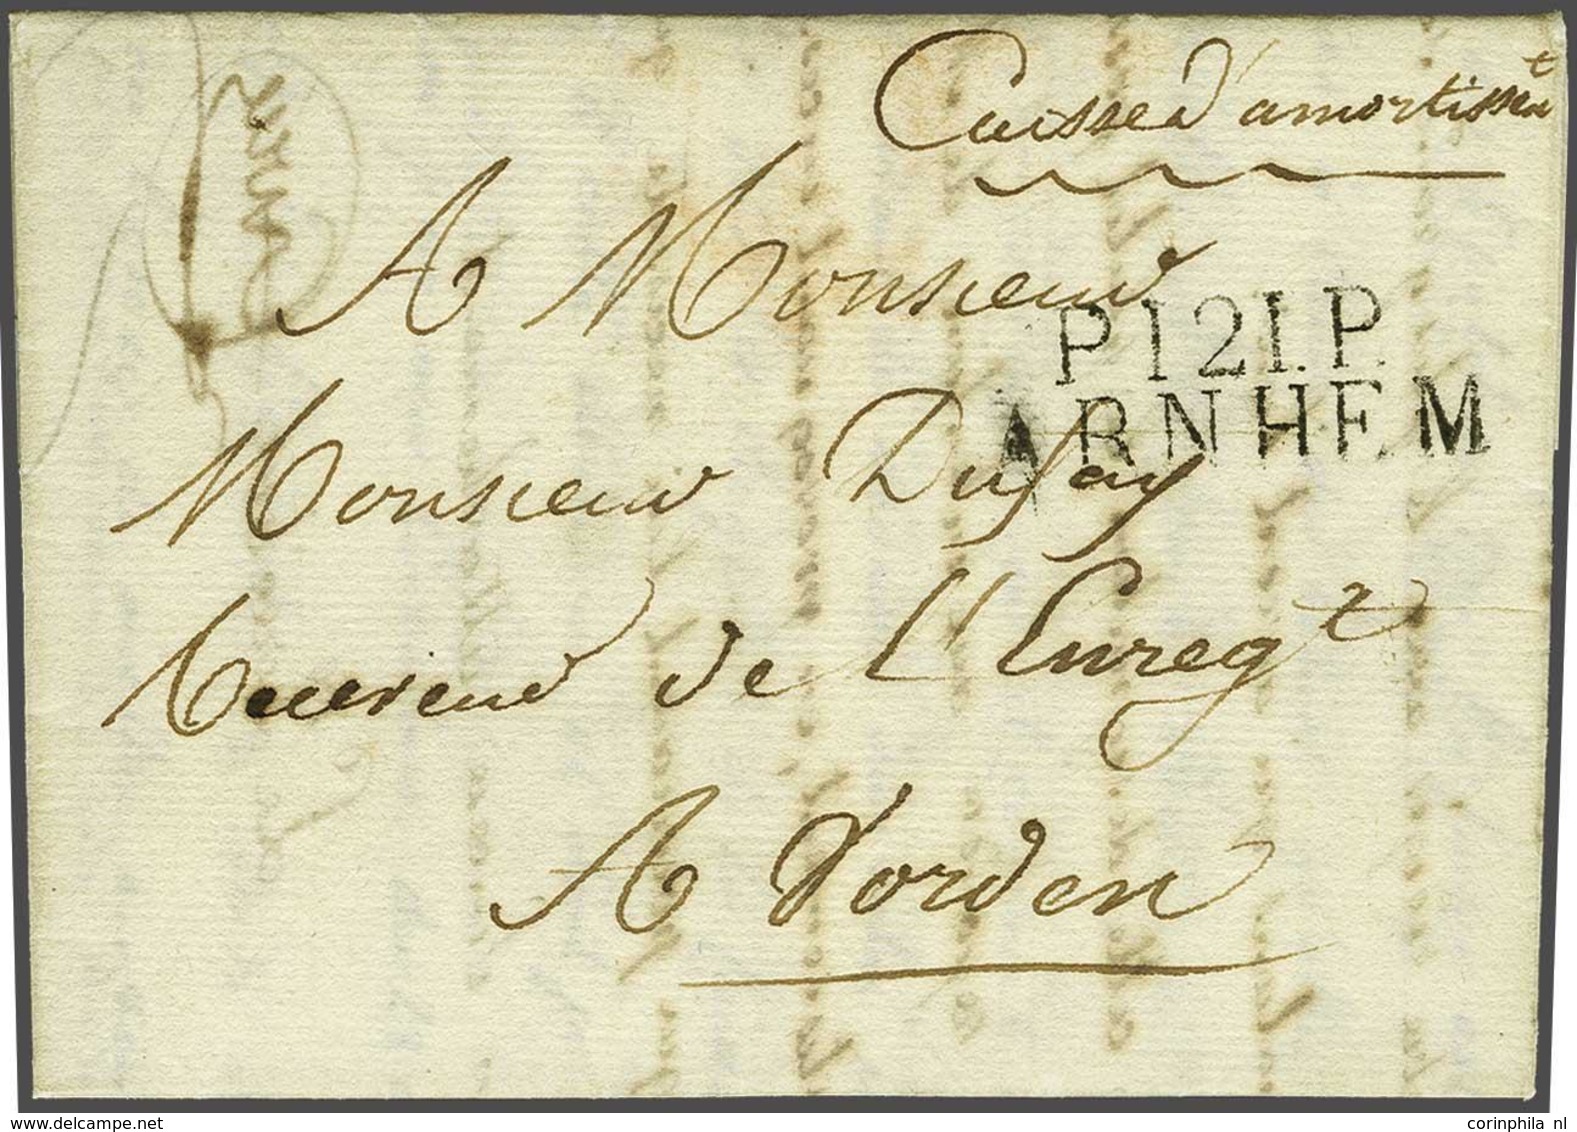 Caisse d'amortissent
A Monsieur
P.121.P.
ARNHEM
Monsieur Dufay
Receveur de l'Enregt
A Vorden
delcampe.net
corinphila nl